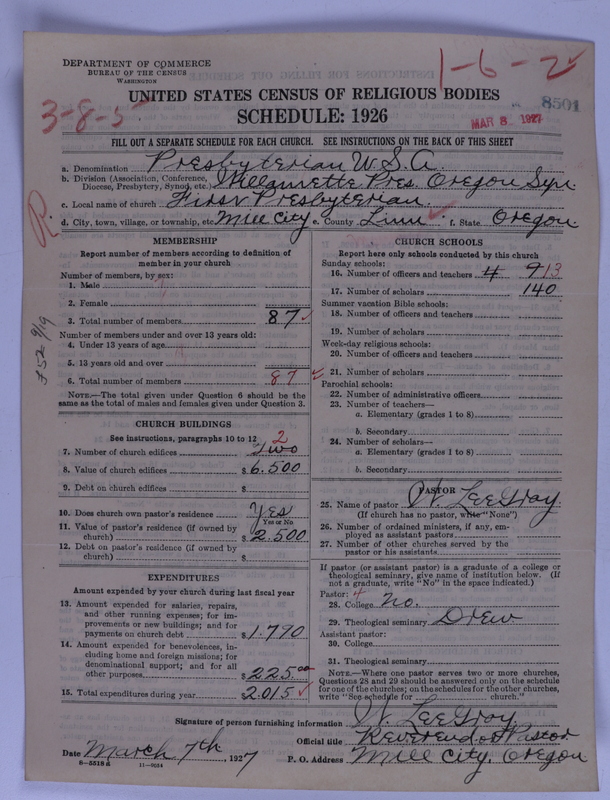 DEPARTMENT OF COMMERCE
BUREAU OF THE CENSUS
WASHINGTON
1-6-2
3-8-5
UNITED STATES CENSUS OF RELIGIOUS BODIES
8501
SCHEDULE: 1926
MAR 8 1927
FILL OUT A SEPARATE SCHEDULE FOR EACH CHURCH. SEE INSTRUCTIONS ON THE BACK OF THIS SHEET
a. Denomination Presbyterian U.S.A.
b. Division (Association, Conference, Diocese, Presbytery, Synod, etc.) Willamette Pres. Oregon Syn.
c. Local name of church First Presbyterian
d. City, town, village, or township, etc. Mill City e. County Linn f. State Oregon
R
MEMBERSHIP
Report number of members according to definition of
member in your church
Number of members, by sex:
1. Male
2. Female
3. Total number of members 87
Number of members under and over 13 years old:
4. Under 13 years of age
5. 13 years old and over
6. Total number of members 87
NOTE.—The total given under Question 6 should be the
same as the total of males and females given under Question 3.
CHURCH BUILDINGS
See instructions, paragraphs 10 to 12 2
7. Number of church edifices Two
8. Value of church edifices $ 6.500
9. Debt on church edifices $
10. Does church own pastor's residence Yes
Yes or No
11. Value of pastor's residence (if owned by
church) $ 2.500
12. Debt on pastor's residence (if owned by
church) $
EXPENDITURES
Amount expended by your church during last fiscal year
13. Amount expended for salaries, repairs,
and other running expenses; for im-
provements or new buildings; and for
payments on church debt $ 1.790
14. Amount expended for benevolences, in-
cluding home and foreign missions; for
denominational support; and for all
other purposes $ 225.00
15. Total expenditures during year $ 2.015
CHURCH SCHOOLS
Report here only schools conducted by this church
Sunday schools:
16. Number of officers and teachers 4 9 13
17. Number of scholars 140
Summer vacation Bible schools:
18. Number of officers and teachers
19. Number of scholars
Week-day religious schools:
20. Number of officers and teachers
21. Number of scholars
Parochial schools:
22. Number of administrative officers
23. Number of teachers—
a. Elementary (grades 1 to 8)
b. Secondary
24. Number of scholars—
a. Elementary (grades 1 to 8)
b. Secondary
PASTOR
25. Name of pastor W. Lee Gray
(If church has no pastor, write "None")
26. Number of ordained ministers, if any, em-
ployed as assistant pastors
27. Number of other churches served by the
pastor or his assistants
If pastor (or assistant pastor) is a graduate of a college or
theological seminary, give name of institution below. (If
not a graduate, write "No" in the space indicated.)
Pastor: 4
28. College No.
29. Theological seminary Drew
Assistant pastor:
30. College
31. Theological seminary
NOTE.—Where one pastor serves two or more churches,
Questions 28 and 29 should be answered only on the schedule
for one of the churches; on the schedules for the other churches,
write "See schedule for church."
Signature of person furnishing information W. Lee Gray
Official title Reverend or Pastor
Date March 7th, 1927 P. O. Address Mill City, Oregon
11-9054